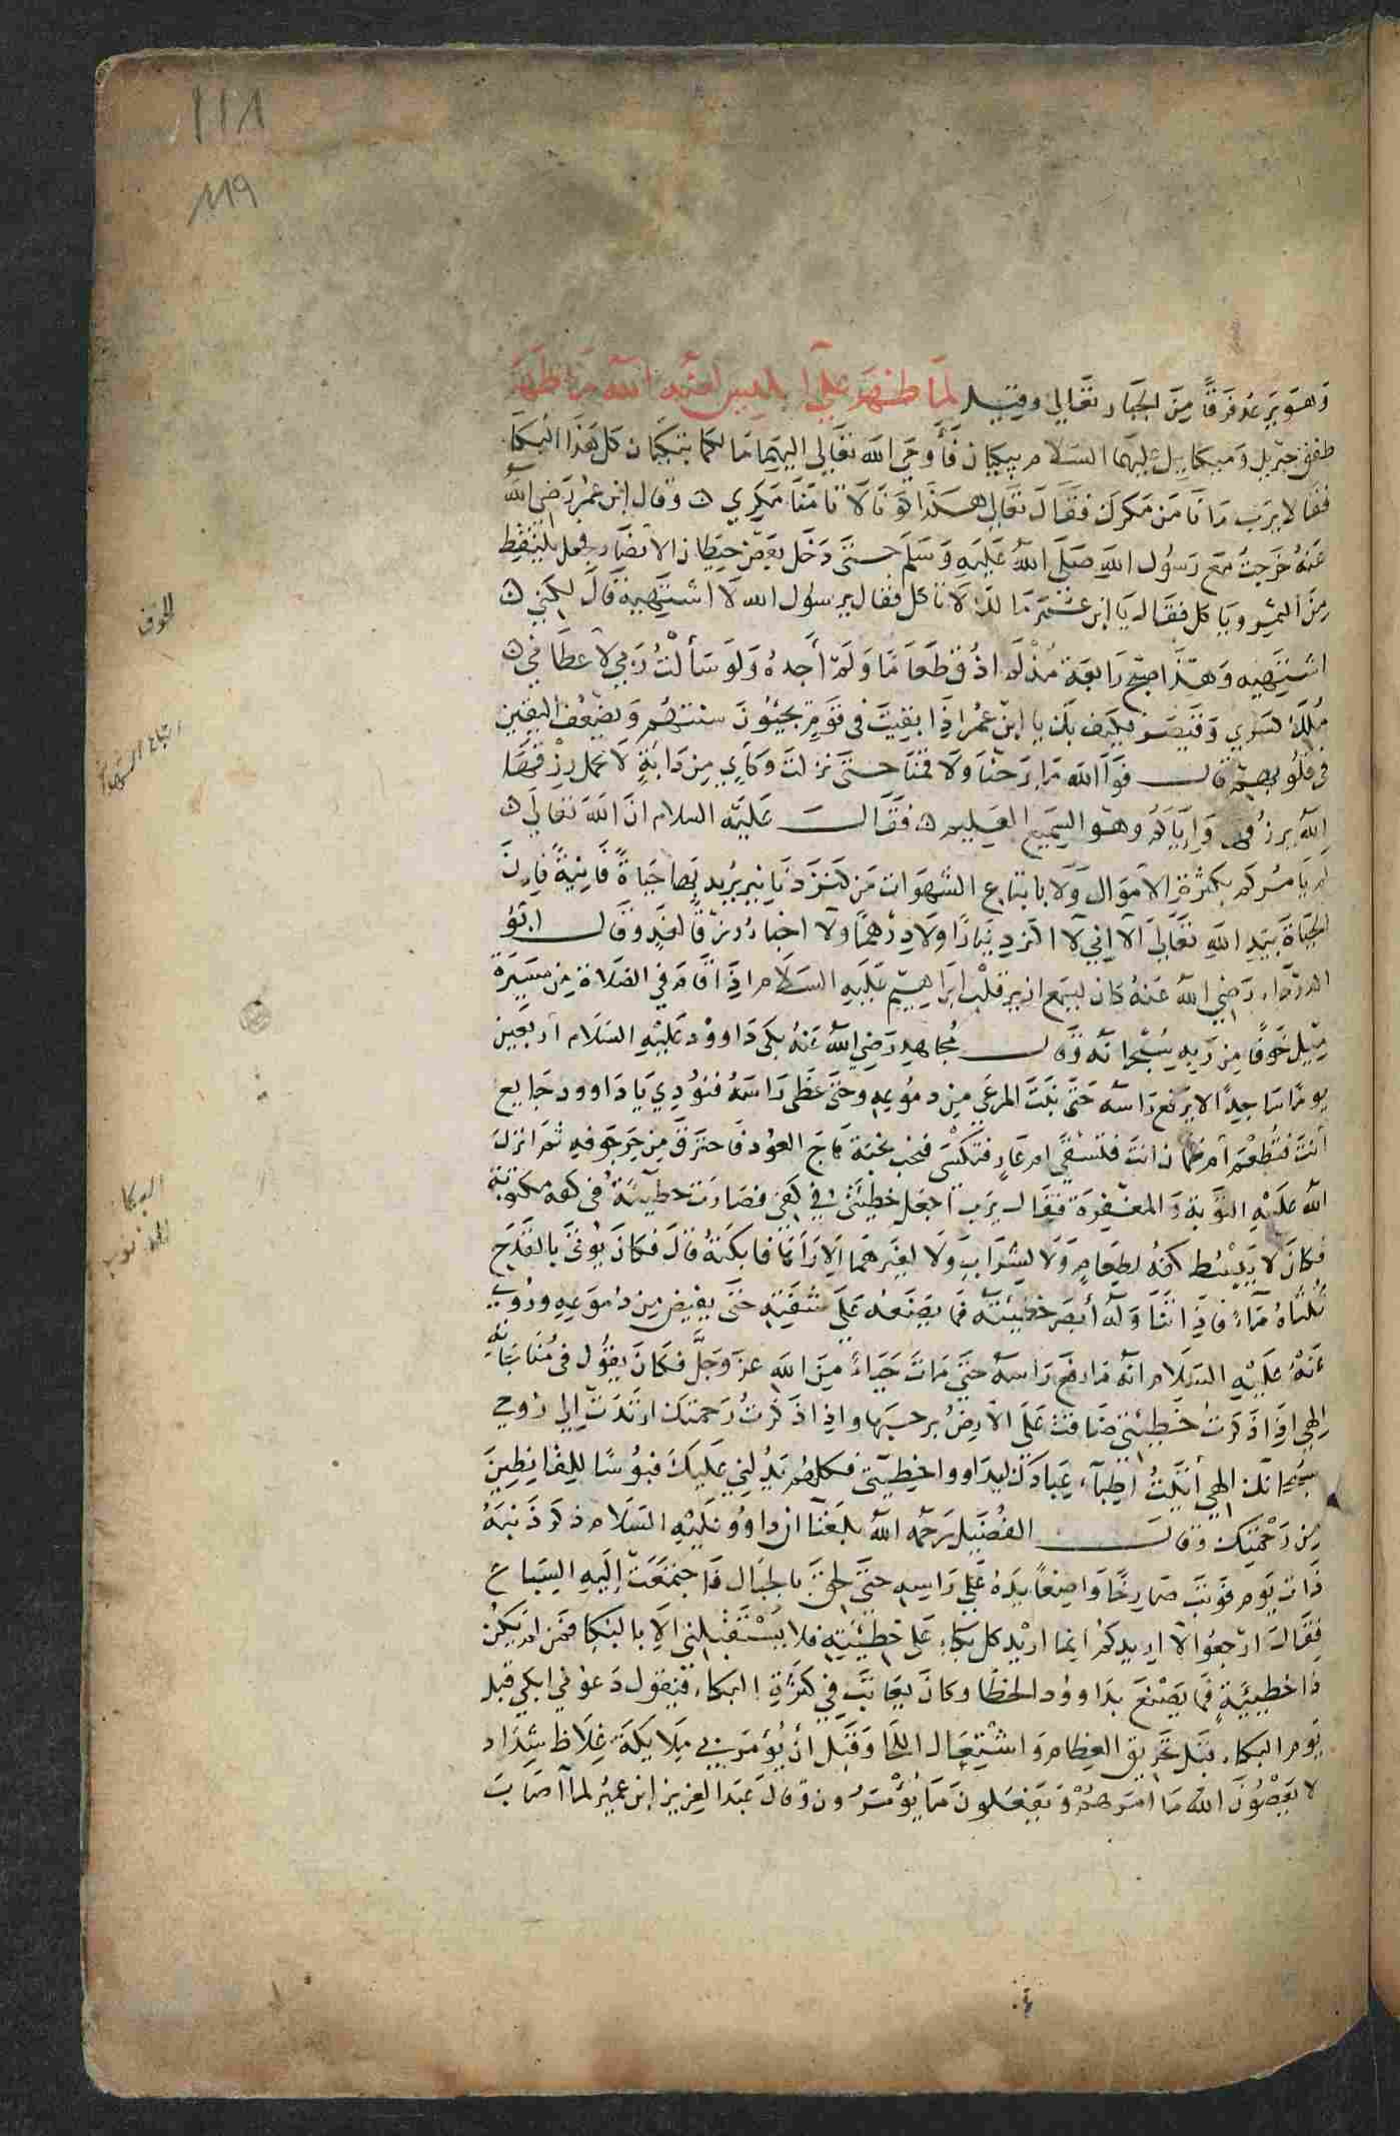 ١١٨
١١٩
وَهُوَ يَرعد فرَقًا مِنَ الجبار تعَالي وقيل لمَا ظهَر علي ابليس لعنه الله مَا ظهَر
طفق جبريل وميكاييل عليهما السلام يبكيان فَأَوحَي الله تعَالي اليهما مَا لكما تبكيَان كل هَذا البكَا
فقالا يرَب مَا نَامَن مَكرك فقَالَ تعَالي هكذا كونَا لا تَامَنَا مَكري ه وقال ابن عمرُ رَضي الله
عَنهُ خرَجت مَع رَسُول الله صَلَّي اللهُ عَليهِ وَسَلمَ حتَّى دَخل بعَض حيطان الانصَار فجعل يلتقط
مِنَ الثمر ويَاكل فقَال يَا ابن عُمَر مَا لكَ لا تَاكل فقال يرسول الله لا اشتهيه قَالَ لكني ه
اشتهيه وَهذَا صبح رَابعَة مُذ لم اذُق طعَامَا وَلمْ أَجدهُ وَلوَ سَألْتُ رَبي لاعطَاني ه
مُلك كسري وَقيصَر فكيف بكَ يا ابن عُمرَ اذَا بقيتَ في قوَمٍ يخبئون سنتهُم وَيضعُف اليقين
في قلوُبهمْ قال فوَاَالله مَا برَحنَا وَلا قمنَا حتى نزلتَ وَكاَيٍ مِن دَابَةٍ لا تحمل رزْقهَا
اللهُ يرزُقها وَإِيَاكم وهوَ السميع العَليم ه فقَال عَليهْ السلام انَّ اللهَ تعَالي ه
لم يَامُركم بكنز الاموَال وَلا باتباع الشهوَات مَن كنزَ دنَانير يُريد بهَا حَيَاةً فَانيَةً فَإِن
الحيَاةَ بيَد اللهِ تعَاليَ ألا اِني لا اكنز دينَارًا ولا درْهمًا ولا اخباءُ رزقًا لغدٍ وقال ابوُ
الدردَاء رَضِيَ اللهُ عَنهُ كان يسمَع ازيز قلْب ابرَاهِيم عَليهِ السَلام اذَا قَامَ في الصَلاة مِن مسيَرة
مِيْل خَوفًا مِن رَبهِ سُبْحَانه وقال مُجَاهِد رَضِي اللهُ عَنهُ بكي دَاووْد عَليْهِ السَلام أَربعين
يومًا سَاجِداً لا يرفع رَاسَه حَتَّى نبَتَ المرعَي مِن دمُوعهِ وحتى غطَّى رَاسَهُ فنُوُدِيَ يَا دَاوود جَايع
أنتَ فتُطعْم أم ظمآن انت فتسْقَي ام عَارٍ فتكْسَي فنحب نحبَة هَاجَ العوُد فَاحترَق مِن حَر جَوفه ثم انزل
الله عَليْهِ التوَبة وَالمغْفِرَة فقَال يرَب اجعَل خطِيئتي في كَفي فصَارَت خطيئتهُ في كفه مكتوبة
فكانَ لا يَبسُط كفهُ لطعَامٍ وَلا لشرَابٍ وَلا لغَيرهمَا إلا رَآهَا فابكَتهُ قالَ فكانَ يؤتَي بالقدَح
ثلثَاهُ مَآءً فاذِا تنَاوَلَه أبصَرَ خطيئته فَمَا يضَعه عَليَ شفَتهِ حتى يفيضَ مِن دمُوعهِ ورُويَ
عَنْهُ عَليْهِ السَلام أنَّه مَا رفع رَاسَهُ حتى مَاتَ حَيَاءً مِنَ اللهِ عَز وَجَلَّ فكانَ يقوُل في مُنَاجَاتهِ
الهي اِذَا ذَكَرت خطِيئتي ضَاقت عَلَي الاَرضُ برحبهَا واذِا ذَكرتُ رَحمتكَ ارتدَت إليَ رُوحِي
سُبحانكَ الهي أتيْتُ اطبآء عِبَادكَ ليدَاووا خطِيئتي فكلهمُ يدُلنِي عَليكَ فبؤُسًا للِقَانِطِينَ
مِن رَحْمَتِكَ وقال الفُضَيل رَحمه اللهُ بلغنَا ان داوُود عَليْهِ السَلام ذكر ذَنبَهُ
ذَات يَوم فوَثبَ صَارخًا وَاضِعًا يَدهُ عَلي رَاسِهِ حتَّى لحِقَ بالجبَال فَاجتمَعَت إليهِ السِبَاع
فقَالَ ارْجعُوا لا اريدكم انما اريْد كل بكاءٍ عَلي خطِيئتِهِ فلا يَسْتَقبْلني الا بالبكا وَمَن لم يكنْ
ذا خطيئَةٍ فَمَا يَصْنعَ بدَاووُد الخطَا وكانَ يعَاتبَ في كثرَةِ البكاءِ فيَقول دَعوُني ابكي قبل
يوَم البكاء قبْل تحَريق العِظام وَاشتِعَال اللحَا وَقَبْل أن يُؤمَر بي مَلايكة غِلاظ شِدَاد
لا يَعْصُونَ اللهَ مَا امَرهمُ وَيَفعَلونَ مَا يُؤْمَرُون وقال عَبد العزيز ابن عمير لما أصَابَ
الخوف
اتباع الشهوات
البكاء
الذنوب